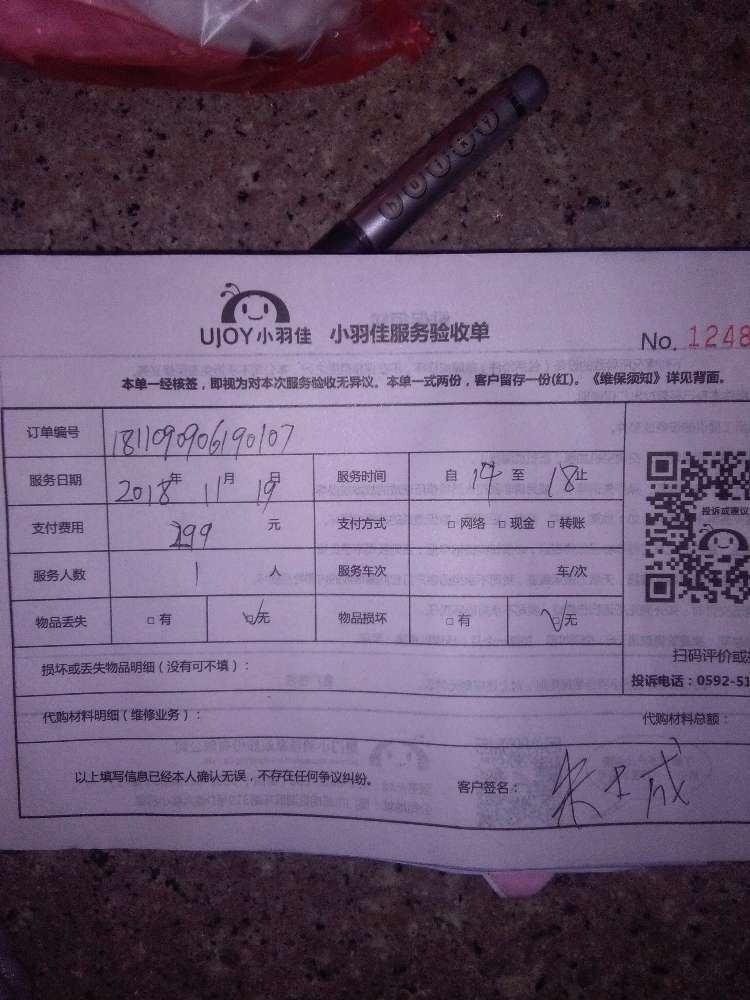 hotata
UJOY小羽佳 小羽佳服务验收单
No. 1248
本单一经核签，即视为对本次服务验收无异议。本单一式两份，客户留存一份(红)。《维保须知》详见背面。
订单编号 181109090619​0107
服务日期 2018年 11月 19日 服务时间 自 14 至 18止
支付费用 299 元 支付方式 □ 网络 □ 现金 □ 转账
投诉或建议
服务人数 1 人 服务车次 车/次
物品丢失 □ 有 ☑无 物品损坏 □ 有 ☑无
扫码评价或
损坏或丢失物品明细（没有可不填）：
投诉电话：0592-51
代购材料明细（维修业务）：
代购材料总额：
以上填写信息已经本人确认无误，不存在任何争议纠纷。
客户签名：朱士成